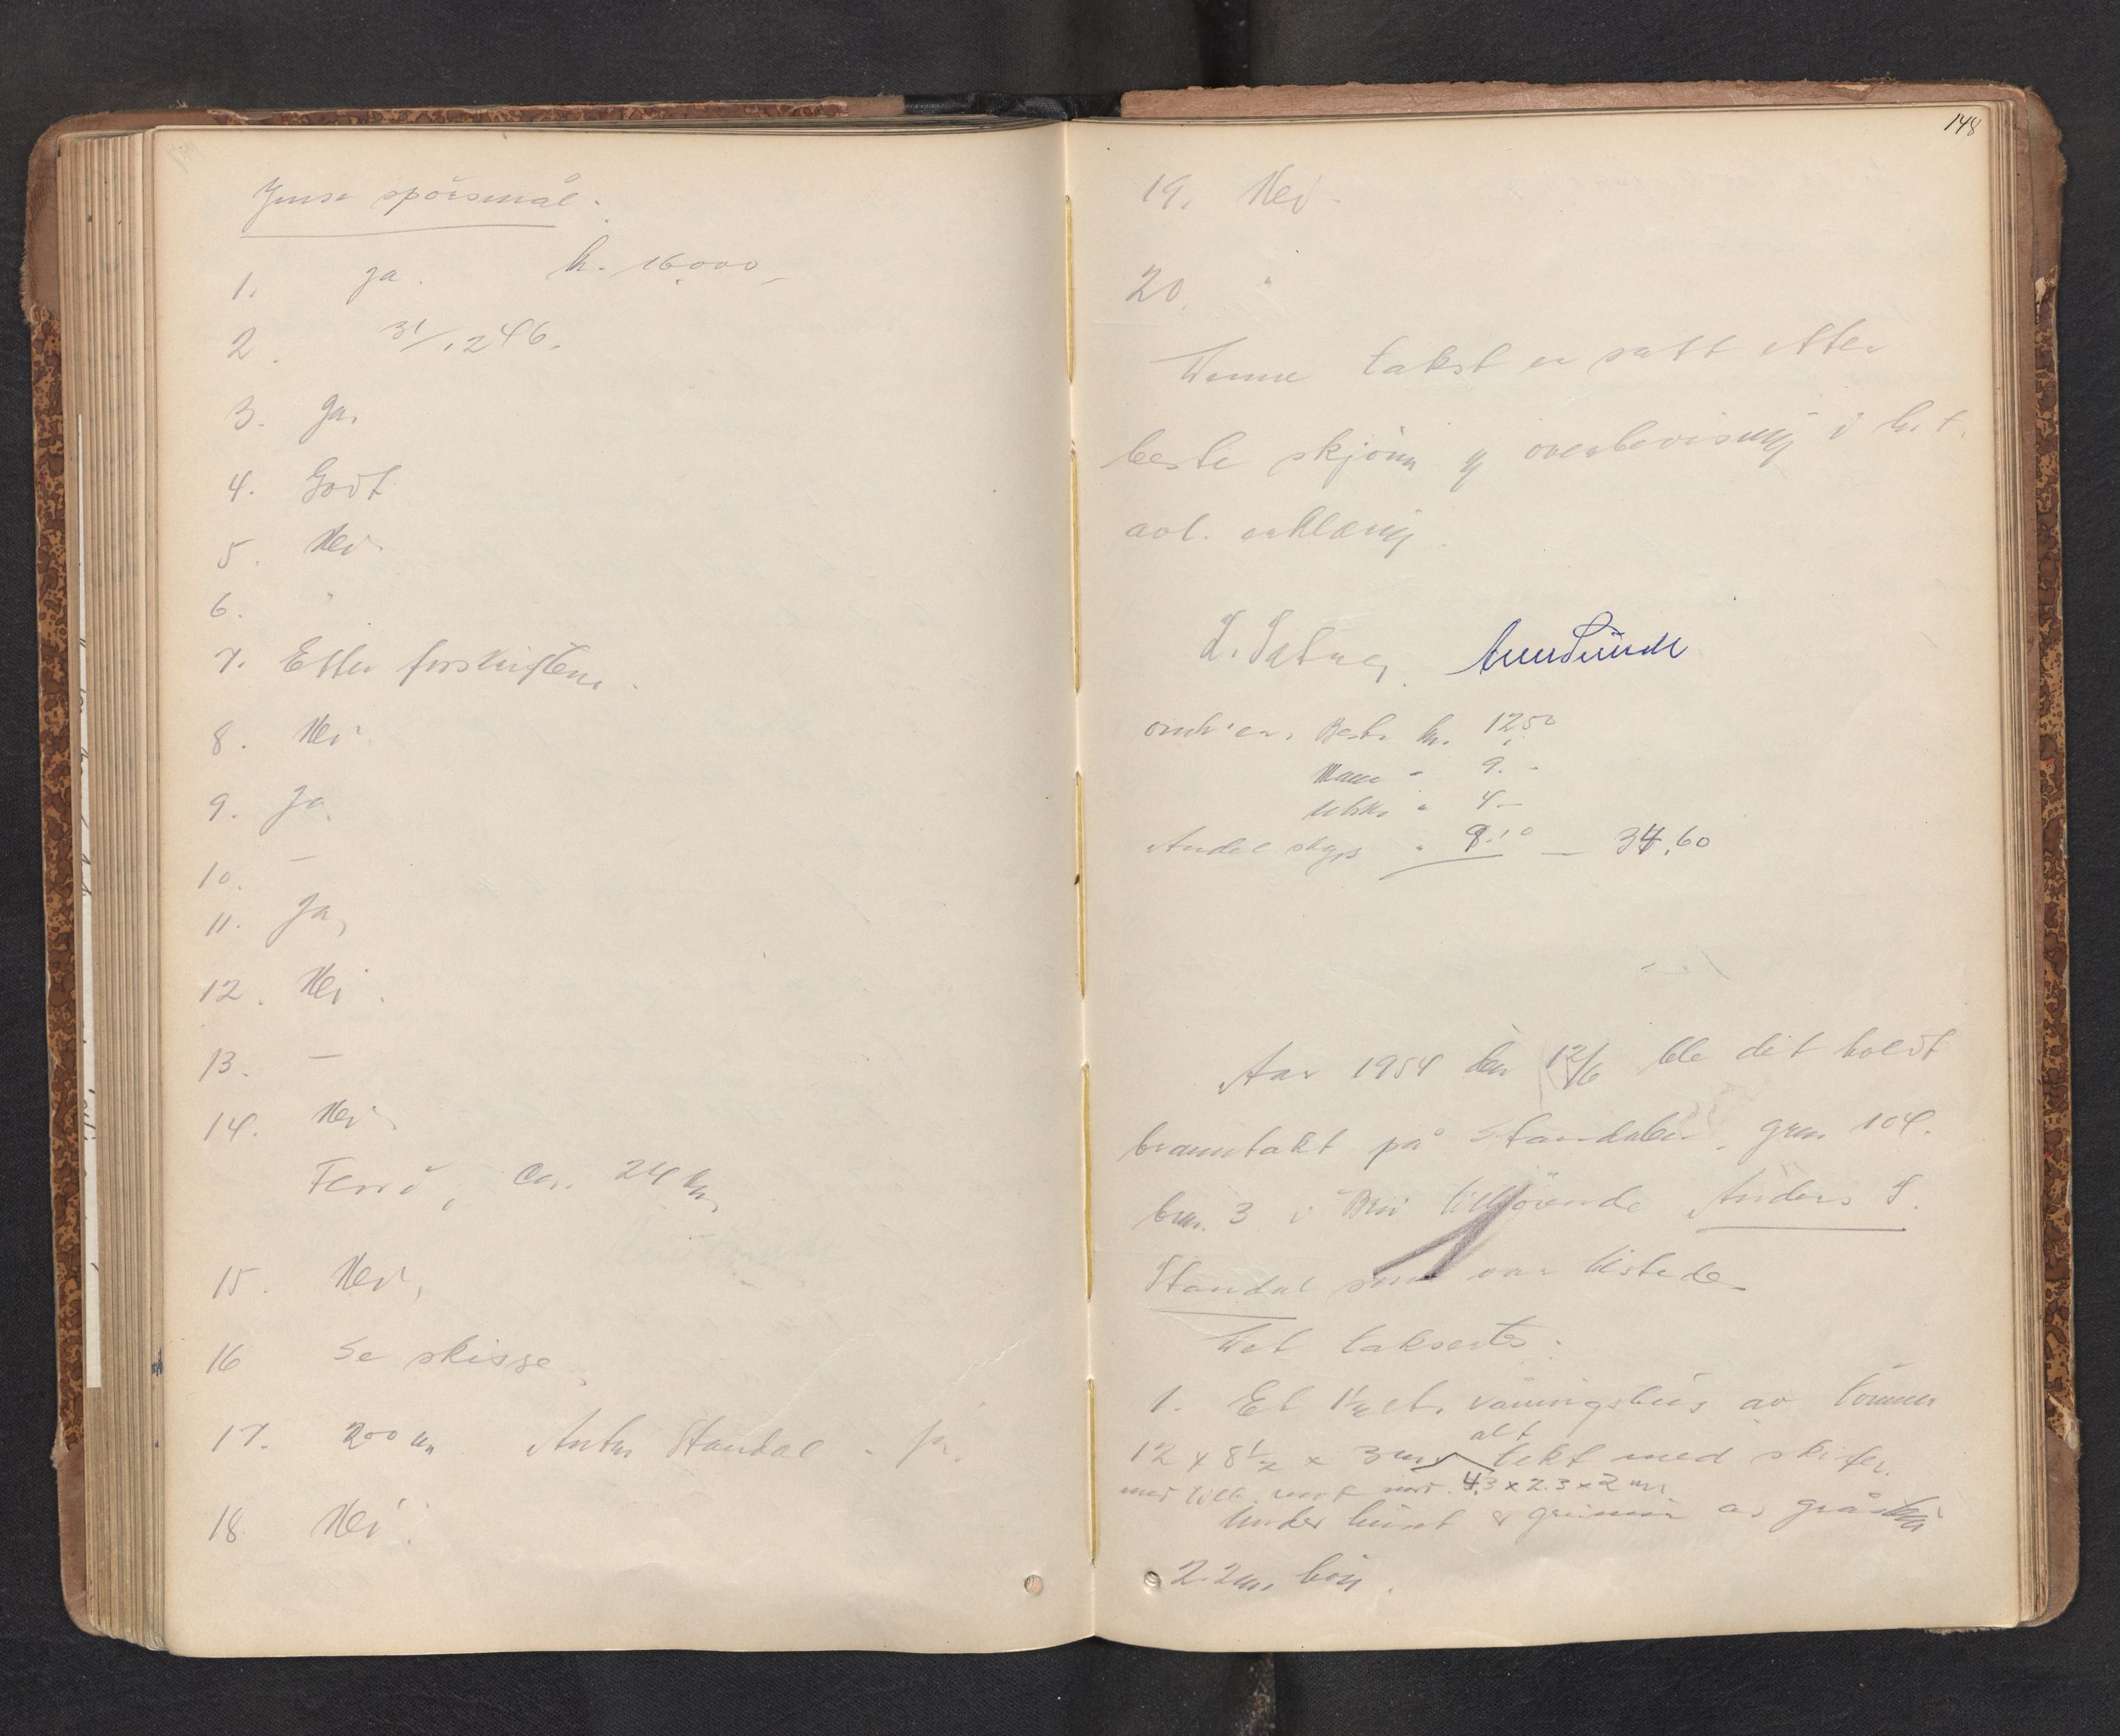 Ymse spörsmål.
1. Ja. kr. 16000,-
2. 31/12 46.
3. Ja.
4. Godt
5. Nei
6. "
7. Etter forskriftene.
8. Nei.
9. Ja
10. –
11. Ja,
12. Nei.
13. –
14. Nei
ca. 24 km
15. Nei,
16 Se skisse,
17. 200 m Standal - jr.
18 Nei.
148
19. Nei.
20. "
Denne takst er satt etter
beste skjönn og overbevisning i h.t.
avl. erklæring.
Best. kr. 12.50
Navn " 9.-
" 4 –
Andel skyss " 9.10 – 34.60
Aar 1954 den 12/6 ble det holdt
branntakst på Standalen, gnr. 104.
bnr. 3 i tilhörende Anders S.
Standal som var tilstede.
Det takserts.
1. Et 1½ et. våningshus av tömmer
alt
12 x 8½ x 3 m. tekt med skifer.
med tilb. mot nord. 4.3 x 2.3 x 2 m.
Under huset er grunmur av gråstein
2.2 m. höy.